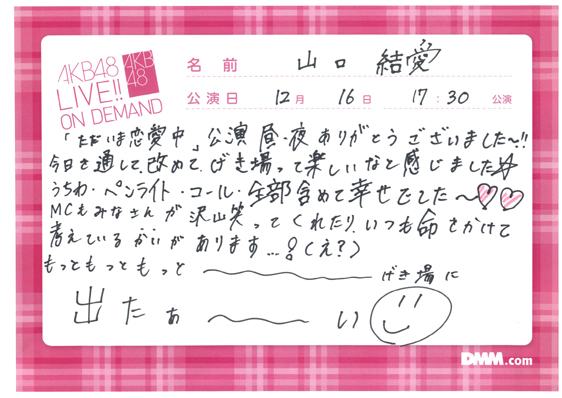 AKB48
LIVE!!
ON DEMAND
AKB
48
名前 山口 結愛
公演日 12月 16日 17:30 公演
「ただいま恋愛中」公演 昼・夜 ありがとうございました〜!!
今日を通して、改めて、げき場って楽しいなと感じました☆
うちわ・ペンライト・コール・全部含めて幸せでした〜♡♡
MCもみなさんが沢山笑ってくれたり、いつも命をかけて
考えているかいがあります...!(え?)
もっともっともっと〜げき場に
出たぁ〜い
DMM.com